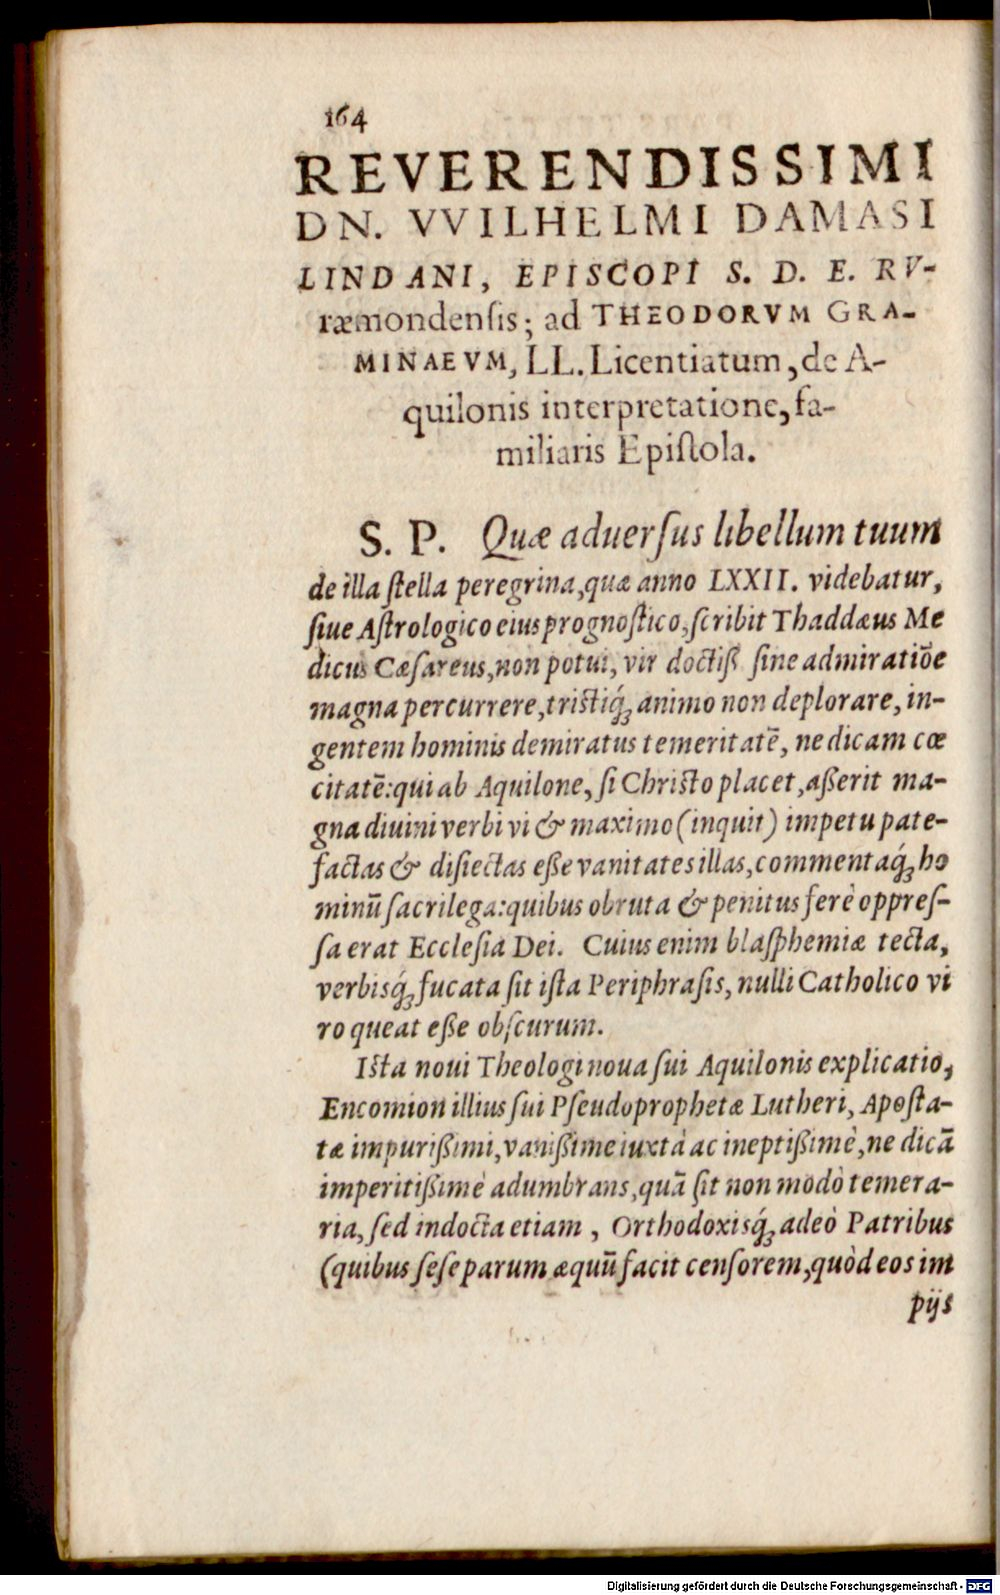 164
REVERENDISSIMI
DN. VVILHELMI DAMASI
LINDANI, EPISCOPI S. D. E. RV-
ræmondenſis; ad THEODORVM GRA-
MINAEVM, LL. Licentiatum, de A-
quilonis interpretatione, fa-
miliaris Epiſtola.
S. P. Quæ aduerſus libellum tuum
de illa ſtella peregrina, quæ anno LXXII. videbatur,
ſiue Aſtrologico eius prognoſtico, ſcribit Thaddæus Me
dicus Cæſareus, non potui, vir doctiß ſine admiratiōe
magna percurrere, tristiq́ꝫ animo non deplorare, in-
gentem hominis demiratus temeritatē, ne dicam cœ
citatē: qui ab Aquilone, ſi Christo placet, aßerit ma-
gna diuini verbi vi & maximo (inquit) impetu pate-
factas & diſiectas eße vanitates illas, commentaq́ꝫ ho
minū ſacrilega: quibus obruta & penitus ferè oppreſ-
ſa erat Eccleſia Dei. Cuius enim blaſphemiæ tecta,
verbisq́ꝫ fucata ſit iſta Periphraſis, nulli Catholico vi
ro queat eße obſcurum.
Ista noui Theologi noua ſui Aquilonis explicatio,
Encomion illius ſui Pſeudoprophetæ Lutheri, Apoſta-
tæ impurißimi, vanißime iuxtà ac ineptißimè, ne dicā
imperitißimè adumbrans, quā ſit non modò temera-
ria, ſed indocta etiam, Orthodoxisq́ꝫ adeò Patribus
(quibus ſeſe parum æquū facit cenſorem, quòd eos im
pijs
Digitalisierung gefördert durch die Deutsche Forschungsgemeinschaft - DFG